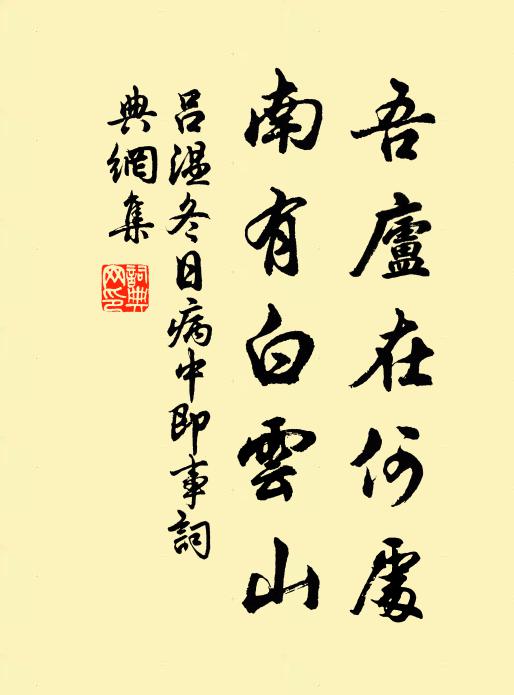 吾廬在何處
南有白雲山
呂溫冬日病中即事詞
典網集
詞典
网印